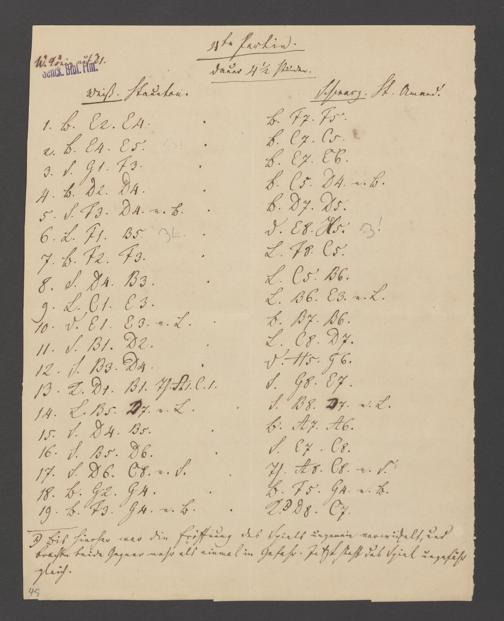 11te Partie.
Senck. Bibl. Ffm.
Dauer 4½ Stunden.
Weiß. Staunton. Schwarz. St. Amand.
1. b. E2. E4. b. F7. F5.
2. b. E4. E5. b. C7. C5.
3. S. G1. F3. b. E7. E6.
4. b. D2. D4. b. C5. D4. n. B.
5. S. F3. D4. n. B. b. D7. D5.
6. L. F1. B5. D. E8. H5.
7. b. F2. F3. L. F8. C5.
8. S. D4. B3. L. C5. B6.
9. L. C1. E3. L. B6. E3. n. L.
10. D. E1. E3. n. L. b. B7. B6.
11. S. B1. D2. L. C8. D7.
12. S. B3. D4. D. H5. G6.
13. D1. B1. S. G8. E7.
14. L. B5. D7. n. L. S. B8. D7. n. L.
15. S. D4. B5. b. A7. A6.
16. S. B5. D6. S. E7. C8.
17. S. D6. C8. n. S. A8. C8. n. S.
18. b. G2. G4. b. F5. G4. n. B.
19. b. F3. G4. n. B. D8. C7.
Bis hierher war die Eröffnung des Spiels ungemein verwickelt, und
brachte beide Gegner mehr als einmal in Gefahr. Jetzt steht das Spiel ungefähr
gleich.